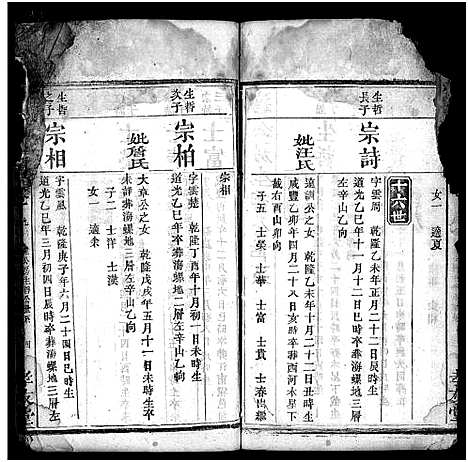 女一 適夏
十六世
生哲長子
宗詩
字雲周 乾隆乙未年正月二十二日辰時生
道光乙巳年十一月十二日時卒葬海螺地二層
左辛山乙向
妣汪氏
達潤公之女 乾隆乙未年十月二十二日丑時生
咸豐乙卯年四月二十八日亥時卒葬西河水星下
戴右酉山卯向
子五 士榮 士華 士富 士貴 士春出繼
宗相
生哲次子
宗柏
字雲楚 乾隆丁酉年十月初一日未時生
道光乙巳年卒葬海螺地二層左辛山乙向
妣詹氏
大章公之女 乾隆戊戌年五月十一日未時生卒
未詳葬海螺地三層左辛山乙向
子二 士洋 士漢
女一 適余
生哲之子
宗相
字雲風 乾隆庚子年六月二十四日巳時生
道光乙巳年三月初四日辰時卒葬海螺地三層左